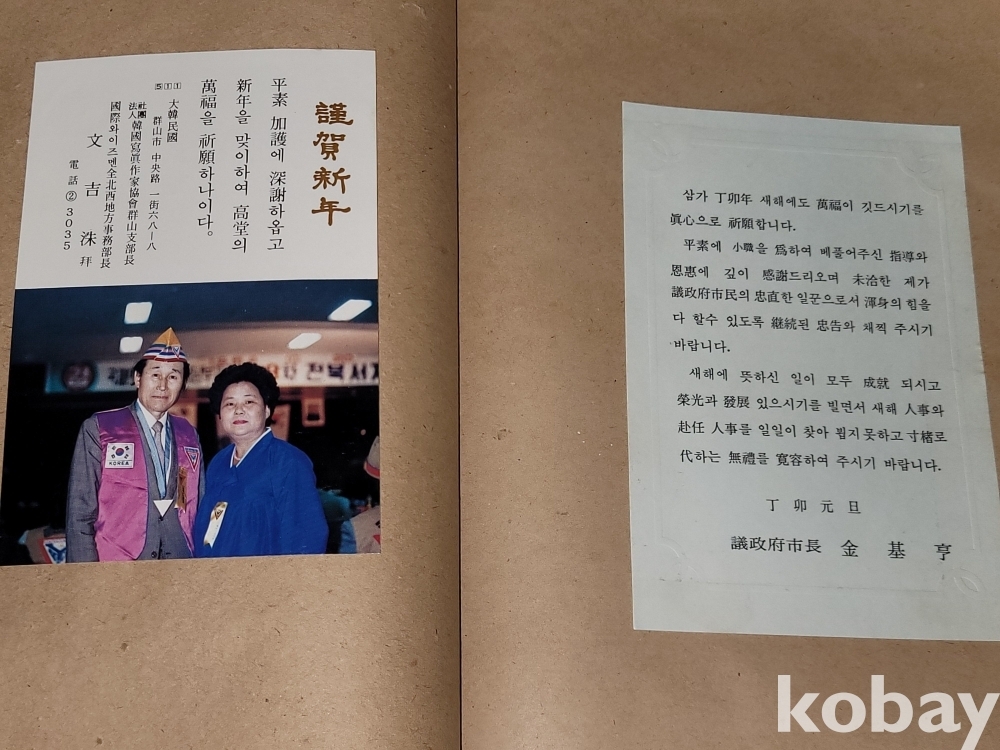 謹賀新年
平素 加護에 深謝하옵고
新年을 맞이하여 高堂의
萬福을 祈願하나이다。
511
大韓民國
群山市 中央路 一街六八ー八
社團法人 韓國寫眞作家協會群山支部長
國際와이즈멘全北西地方事務部長
文吉洙 拜
電話②3035
전북서지
KOREA
삼가 丁卯年 새해에도 萬福이 깃드시기를
眞心으로 祈願합니다.
平素에 小職을 爲하여 베풀어주신 指導와
恩惠에 깊이 感謝드리오며 未洽한 제가
議政府市民의 忠直한 일꾼으로서 渾身의 힘을
다 할수 있도록 継続된 忠告와 채찍 주시기
바랍니다.
새해에 뜻하신 일이 모두 成就 되시고
榮光과 發展 있으시기를 빌면서 새해 人事와
赴任 人事를 일일이 찾아 뵙지 못하고 寸緒로
代하는 無禮를 寬容하여 주시기 바랍니다.
丁卯元旦
議政府市長 金基亨
kobay